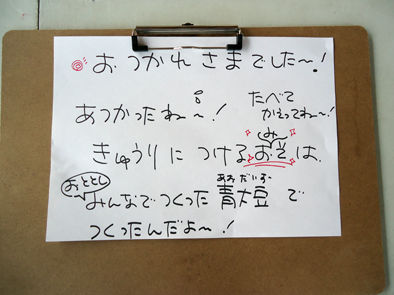 おつかれさまでした〜!
あつかったね〜!
たべて
かえってね〜!
きゅうりにつけるおみそは、
おととし
みんなでつくった青大豆で
あおだいず
つくったんだよ〜!